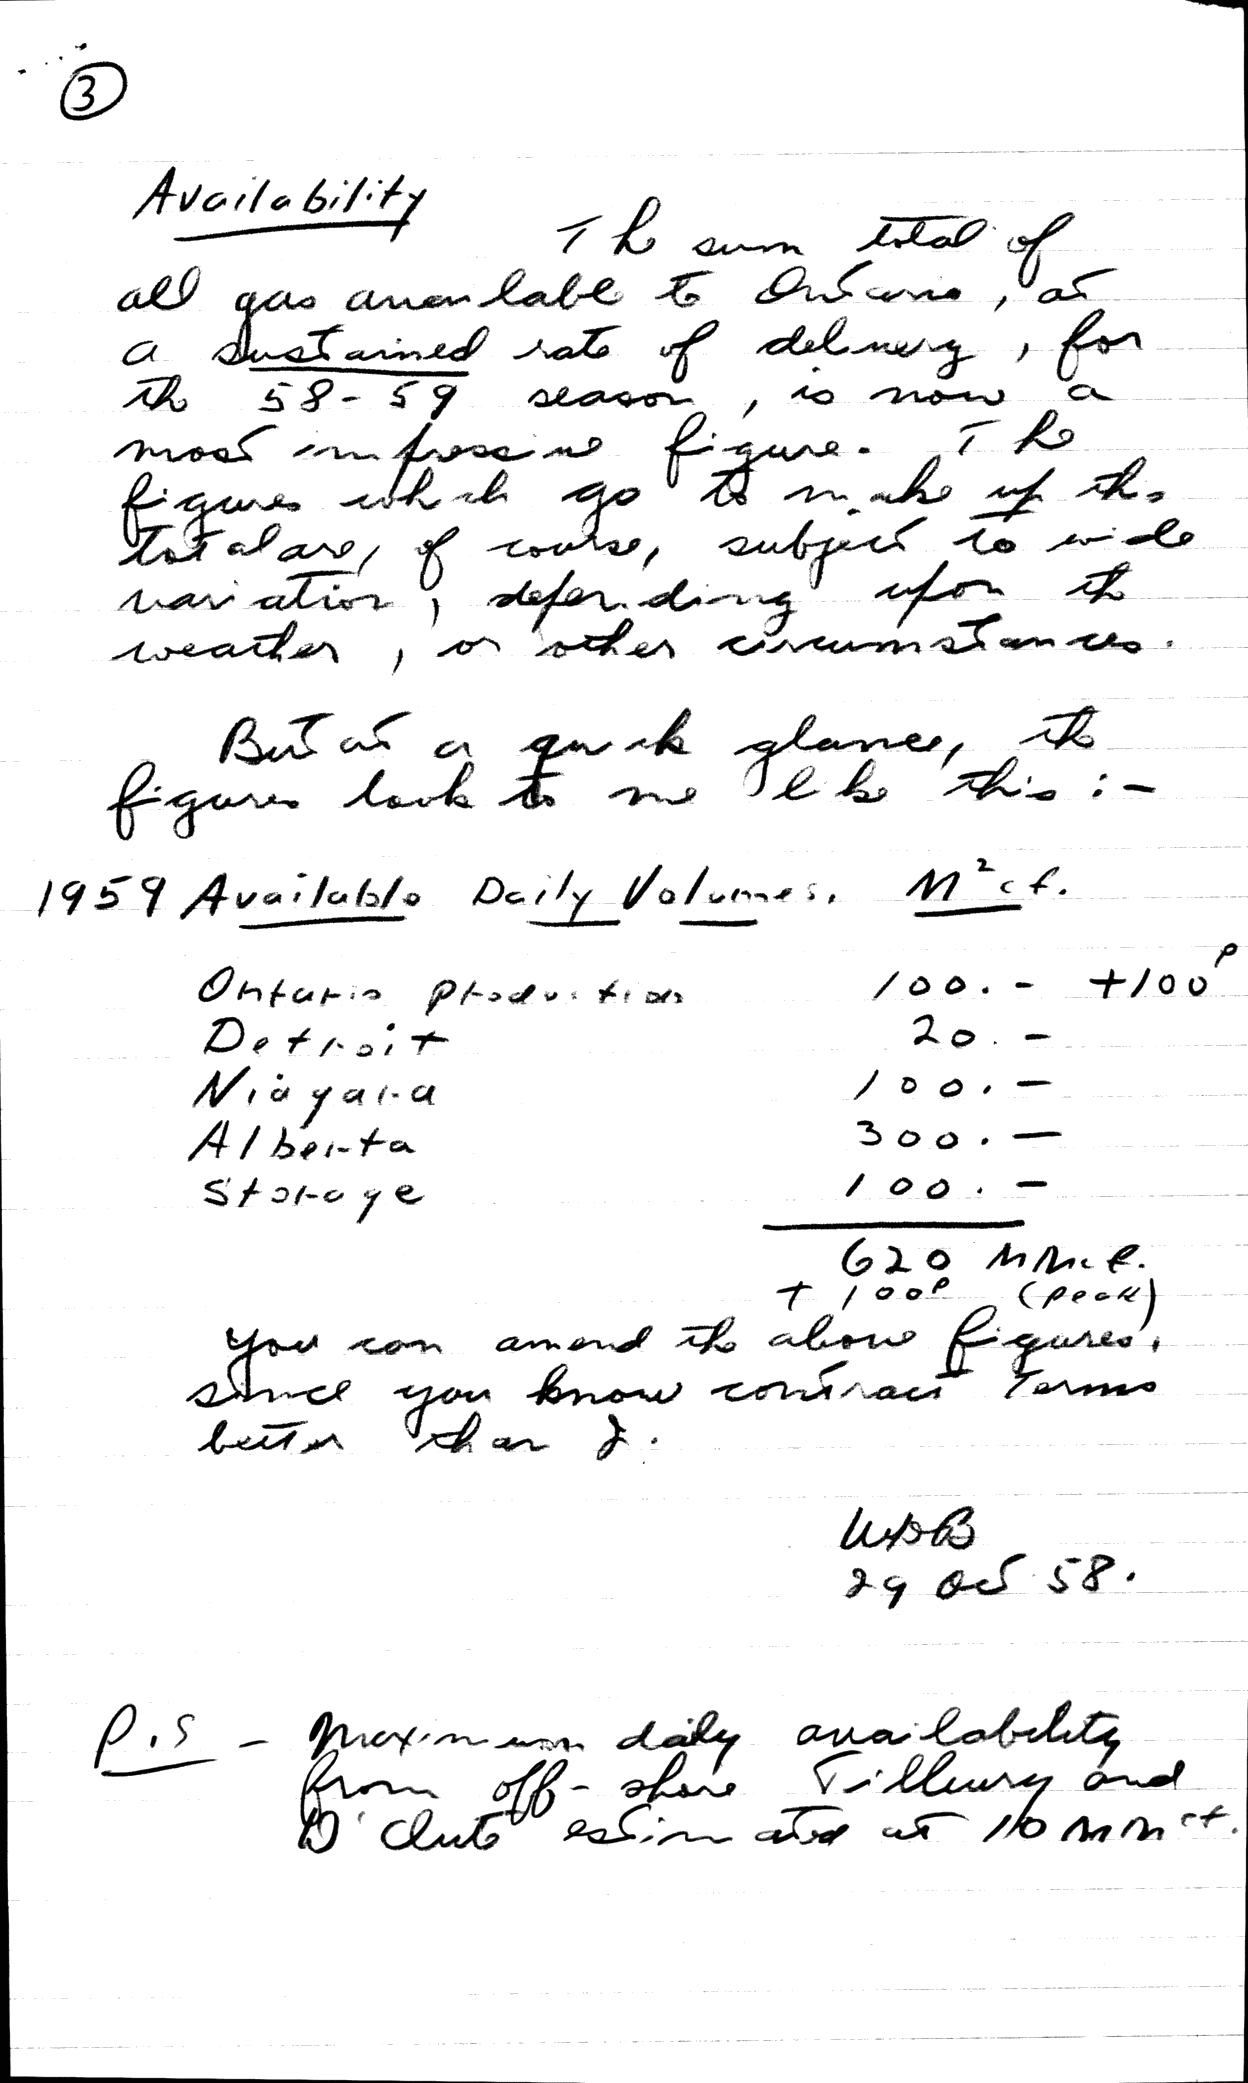 3
Availability
The sum total of
all gas available to Ontario, at
a sustained rate of delivery, for
the 58-59 season, is now a
most impressive figure. The
figures which go to make up the
total are, of course, subject to wide
variation, depending upon the
weather, or other circumstances.
But at a quick glance, the
figures look to me like this :-
1959 Available Daily Volumes. M²cf.
Ontario Production 100.- +100ᴾ
Detroit 20.-
Niagara 100.-
Alberta 300.-
Storage 100.-
620 MMcf.
+ 100ᴾ (peak)
You can amend the above figures,
since you know contract terms
better than I.
29 Oct 58.
P.S - Maximum daily availability
from off-shore Tilbury and
D'Clute estimated at 110 MMcf.